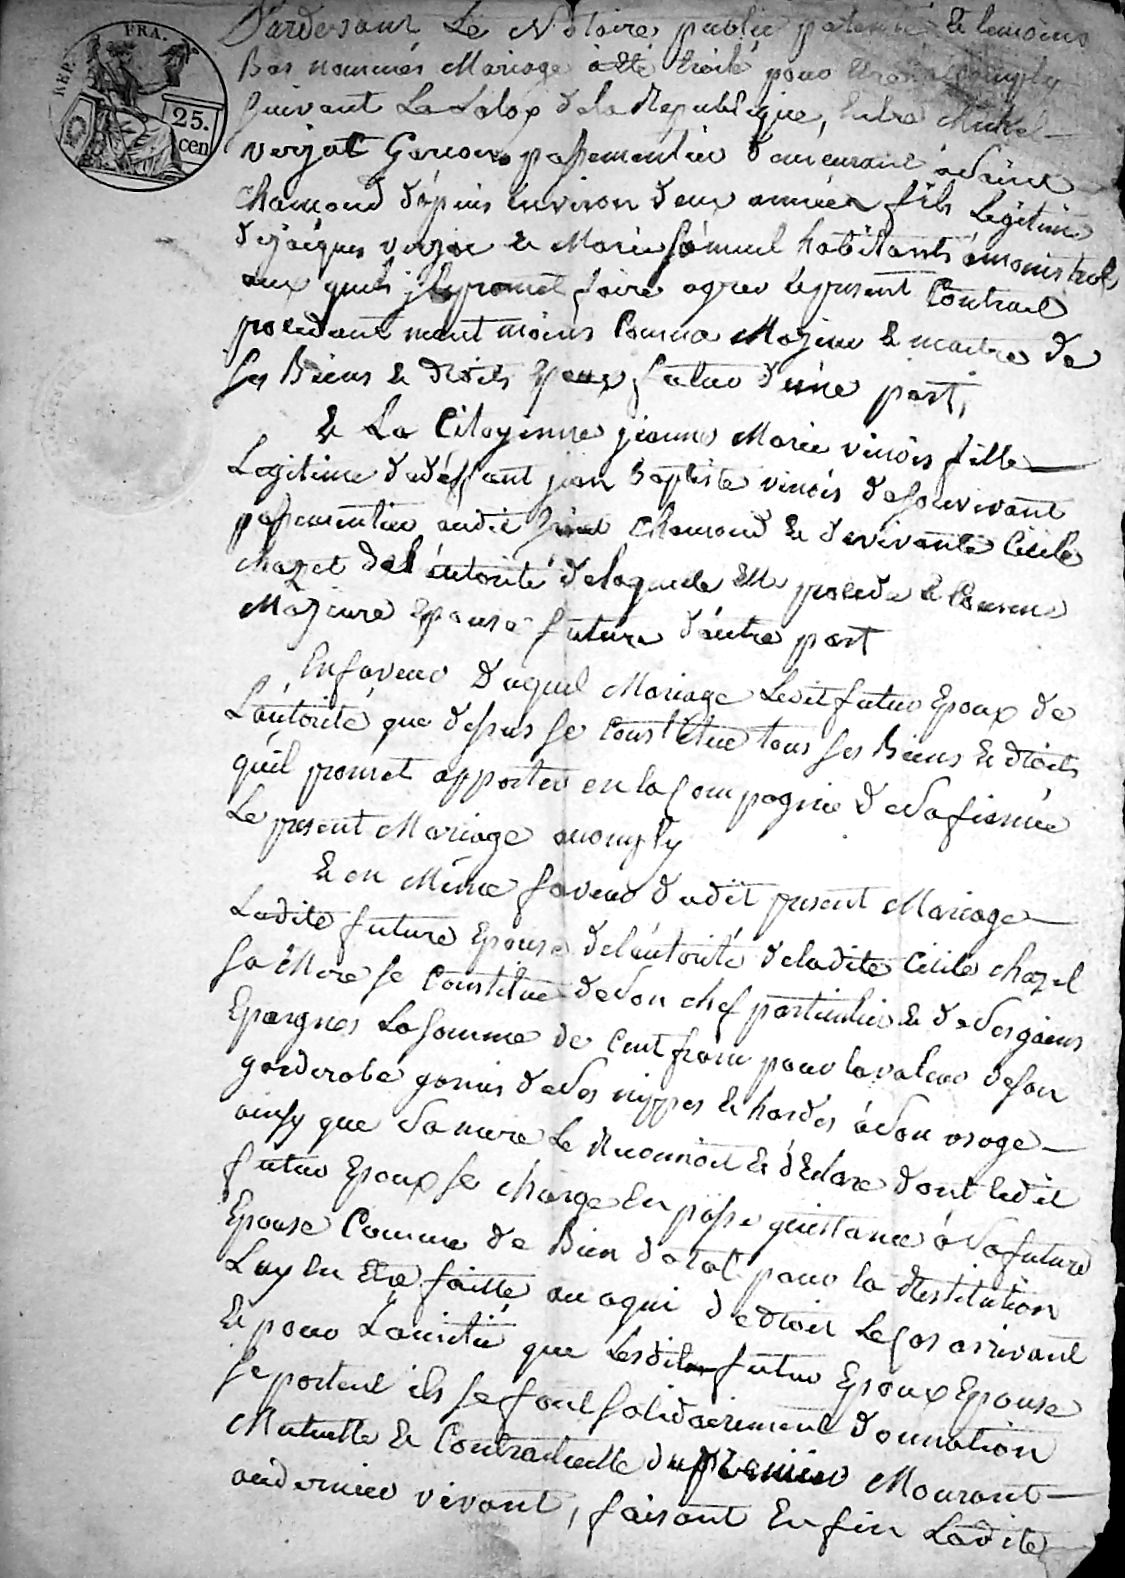 REP. FRA.
25.
cen
Pardevant Le Notaire public patenté & temoins
Bas nommés Mariage à été traité pour
suivant La Loix de la Republique, Entre Michel
verjat Garcon passementier demeurant à Saint
chamond dépuis environ deux années fils Legitime
dejacques verjat & Marie samuel habitants à monistrol
aux quels il promet faire agréer le present Contrat
procedant neant moins Comme Majeur & maitre de
ses Biens & droits Epoux futur d'une part,
& La Citoyenne jeanne Marie vinois fille
Legitime de déffunt jean Baptiste vinois de son vivant
passementier audit Saint Chamond & de vivante Cécile
chazel de l'autorité de laquelle Elle procede & Comme
Majeure Epouse future d'autre part
En faveur Duquel Mariage Ledit futur Epoux de
L'autorité que dessus se Constitue tous ses Biens & droits
qu'il promet apporter en la Compagnie de Sa fiancée
Le present Mariage accomply
& en Même faveur dudit present Mariage
Ladite future Epouse de l'autorité de ladite Cécile chazel
sa Mere se Constitue de Son chef particulier & de Ses gains
Epargnes La somme de Cent franc pour la valeur de son
garderobe garnis de Ses nippes & hardes à Son usage
ainsy que Sa mere Le Reconnoit & déclare dont ledit
futur Epoux se charge En passe quittance à Sa future
Epouse Comme de Bien dotal pour la Restitution
Luy En Etre faitte ou a qui de droit Le Cas arrivant
& pour L'amitié que Lesdits futur Epoux Epouse
se portent ils se font solidairement donnation
Mutuelle & Contractuelle du premier Mourant
au dernier vivant, faisant En fin Ladite